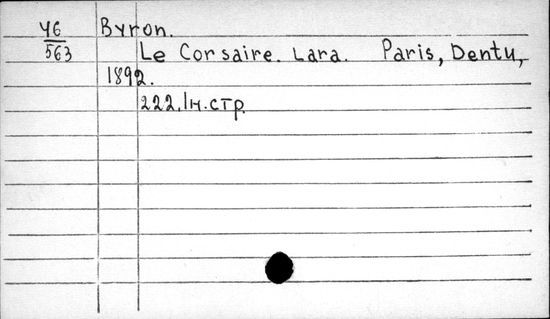 46
563
Byron.
Le Corsaire. Lara. Paris, Dentu,
1892.
222, 1н.стр.